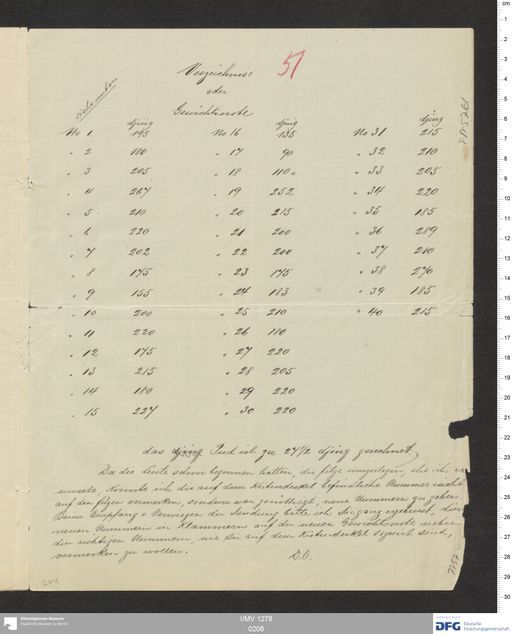 siehe unten
Verzeichniss
51
oder
Gewichtsnote
djing djing djing
No 1 195 No 16 135 No 31 215
" 2 180 " 17 90 " 32 210
" 3 205 " 18 110 " 33 205
" 4 267 " 19 252 " 34 220
" 5 210 " 20 215 " 35 185
" 6 220 " 21 200 " 36 289
" 7 202 " 22 200 " 37 210
" 8 175 " 23 175 " 38 270
" 9 155 " 24 183 " 39 185
" 10 200 " 25 210 " 40 215
" 11 220 " 26 180
" 12 175 " 27 220
" 13 215 " 28 205
" 14 180 " 29 220
" 15 227 " 30 220
das Pud ist zu 27 1/2 djing gerechnet.
Da die Leute schon begonnen hatten, die ehe ich
musste, konnte ich die auf dem Kistendeckel befindliche Nummer nicht
auf den vermerken, sondern war genöthigt, neue Nummern zu geben.
Beim Empfang u. der Sendung bitte ich Sie ganz ergebenst, die
neuen Nummern in Klammern auf der neuen Gewichtsnote neben
den richtigen Nummern, wie sie auf dem Kistendeckel sind,
vermerken zu wollen.
D.O.
204
Ethnologisches Museum
Staatliche Museen zu Berlin
I/MV 1278
0208
DFG Deutsche
Forschungsgemeinschaft